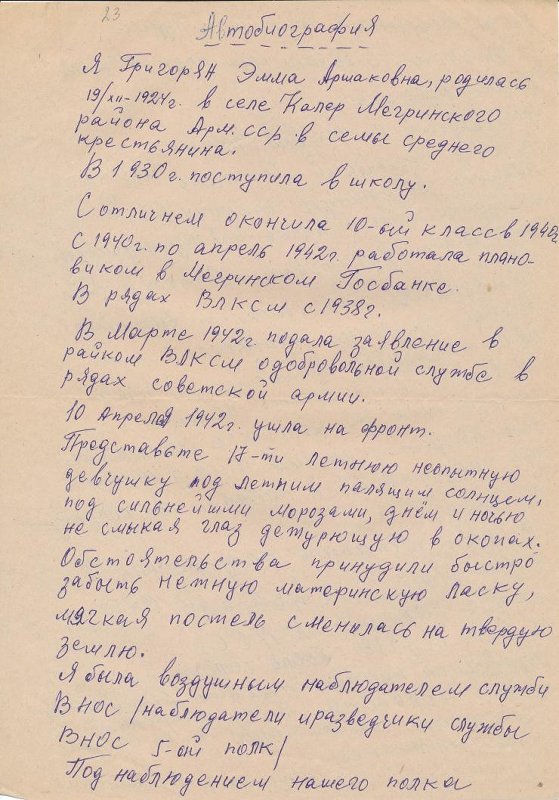 23
Автобиография
Я Григорян Эмма Аршаковна, родилась
19/XII-1924г. в селе Калер Мегринского
района Арм.ССР в семьы среднего
крестьянина.
В 1930г. поступила в школу.
С отличнем окончила 10-ый класс в 1940г
С 1940г. по апрель 1942г. работала плано-
виком в Мегринском Госбанке.
В рядах ВЛКСМ с 1938г.
В Марте 1942г подала заявление в
райком ВЛКСМ одобровольной службе в
рядах советской армии.
10 Апреля 1942г. ушла на фронт.
Представьте 17-ти летнюю неопытную
девчушку под летним палящим солнцем,
под сильнейшми морозами, днём и ночью
не смыкая глаз дежурющую в окопах.
Обстоятельства принудили быстро
забыть нежную материнскую ласку,
мягкая постель сменилась на твердую
землю.
Я была воздушным наблюдателем служби
ВНОС /наблюдатели и разведчики службы
ВНОС 5-ый полк/
Под наблюдением нашего полка